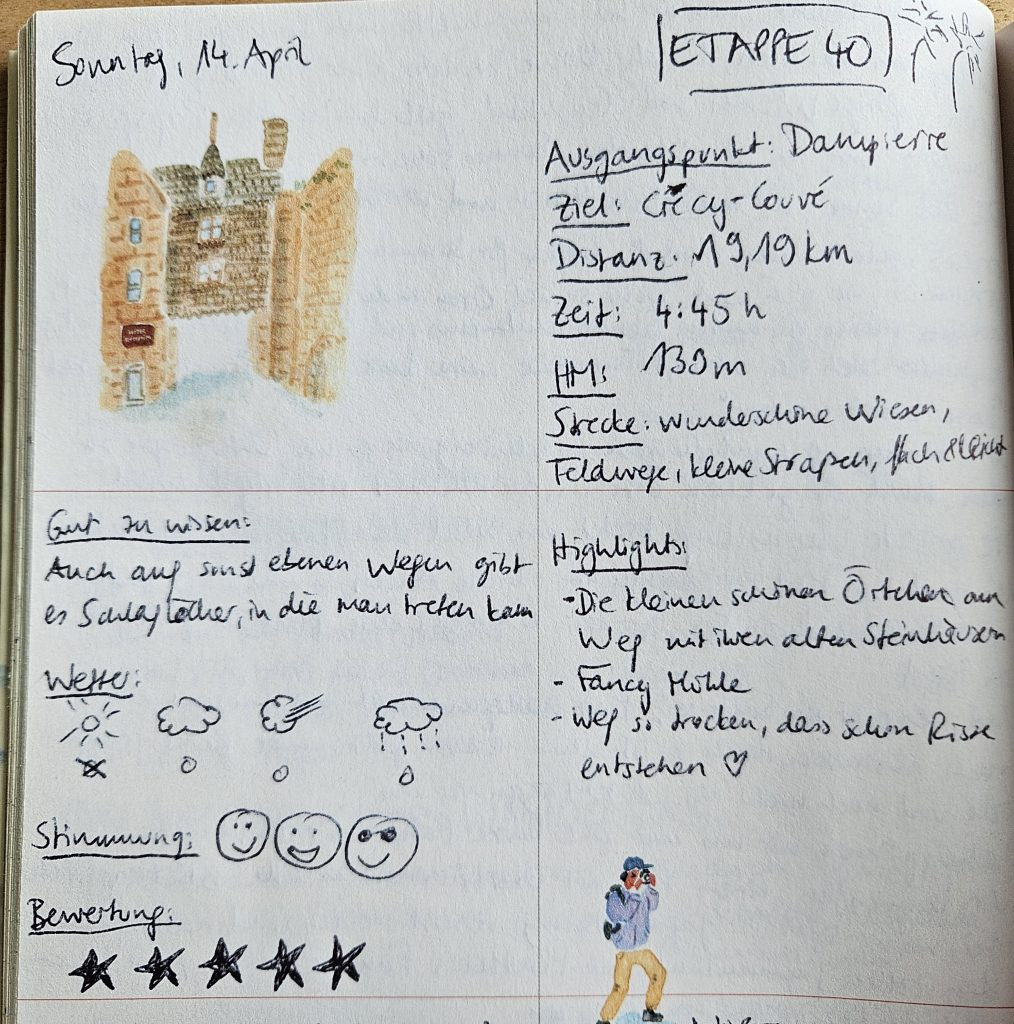 Sonntag, 14. April
ETAPPE 40
Ausgangspunkt: Dampierre
Ziel: Crécy-Couvé
Distanz: 19,19 km
Zeit: 4:45 h
HM: 130m
Strecke: wunderschöne Wiesen,
Feldwege, kleine Straßen, flach & leicht
Gut zu wissen:
Auch auf sonst ebenen Wegen gibt
es Schlaglöcher, in die man treten kann
Wetter:
Stimmung:
Bewertung:
Highlights:
- Die kleinen schönen Örtchen am
Weg mit ihren alten Steinhäusern
- Fancy Mühle
- Weg so trocken, dass schon Risse
entstehen ♡